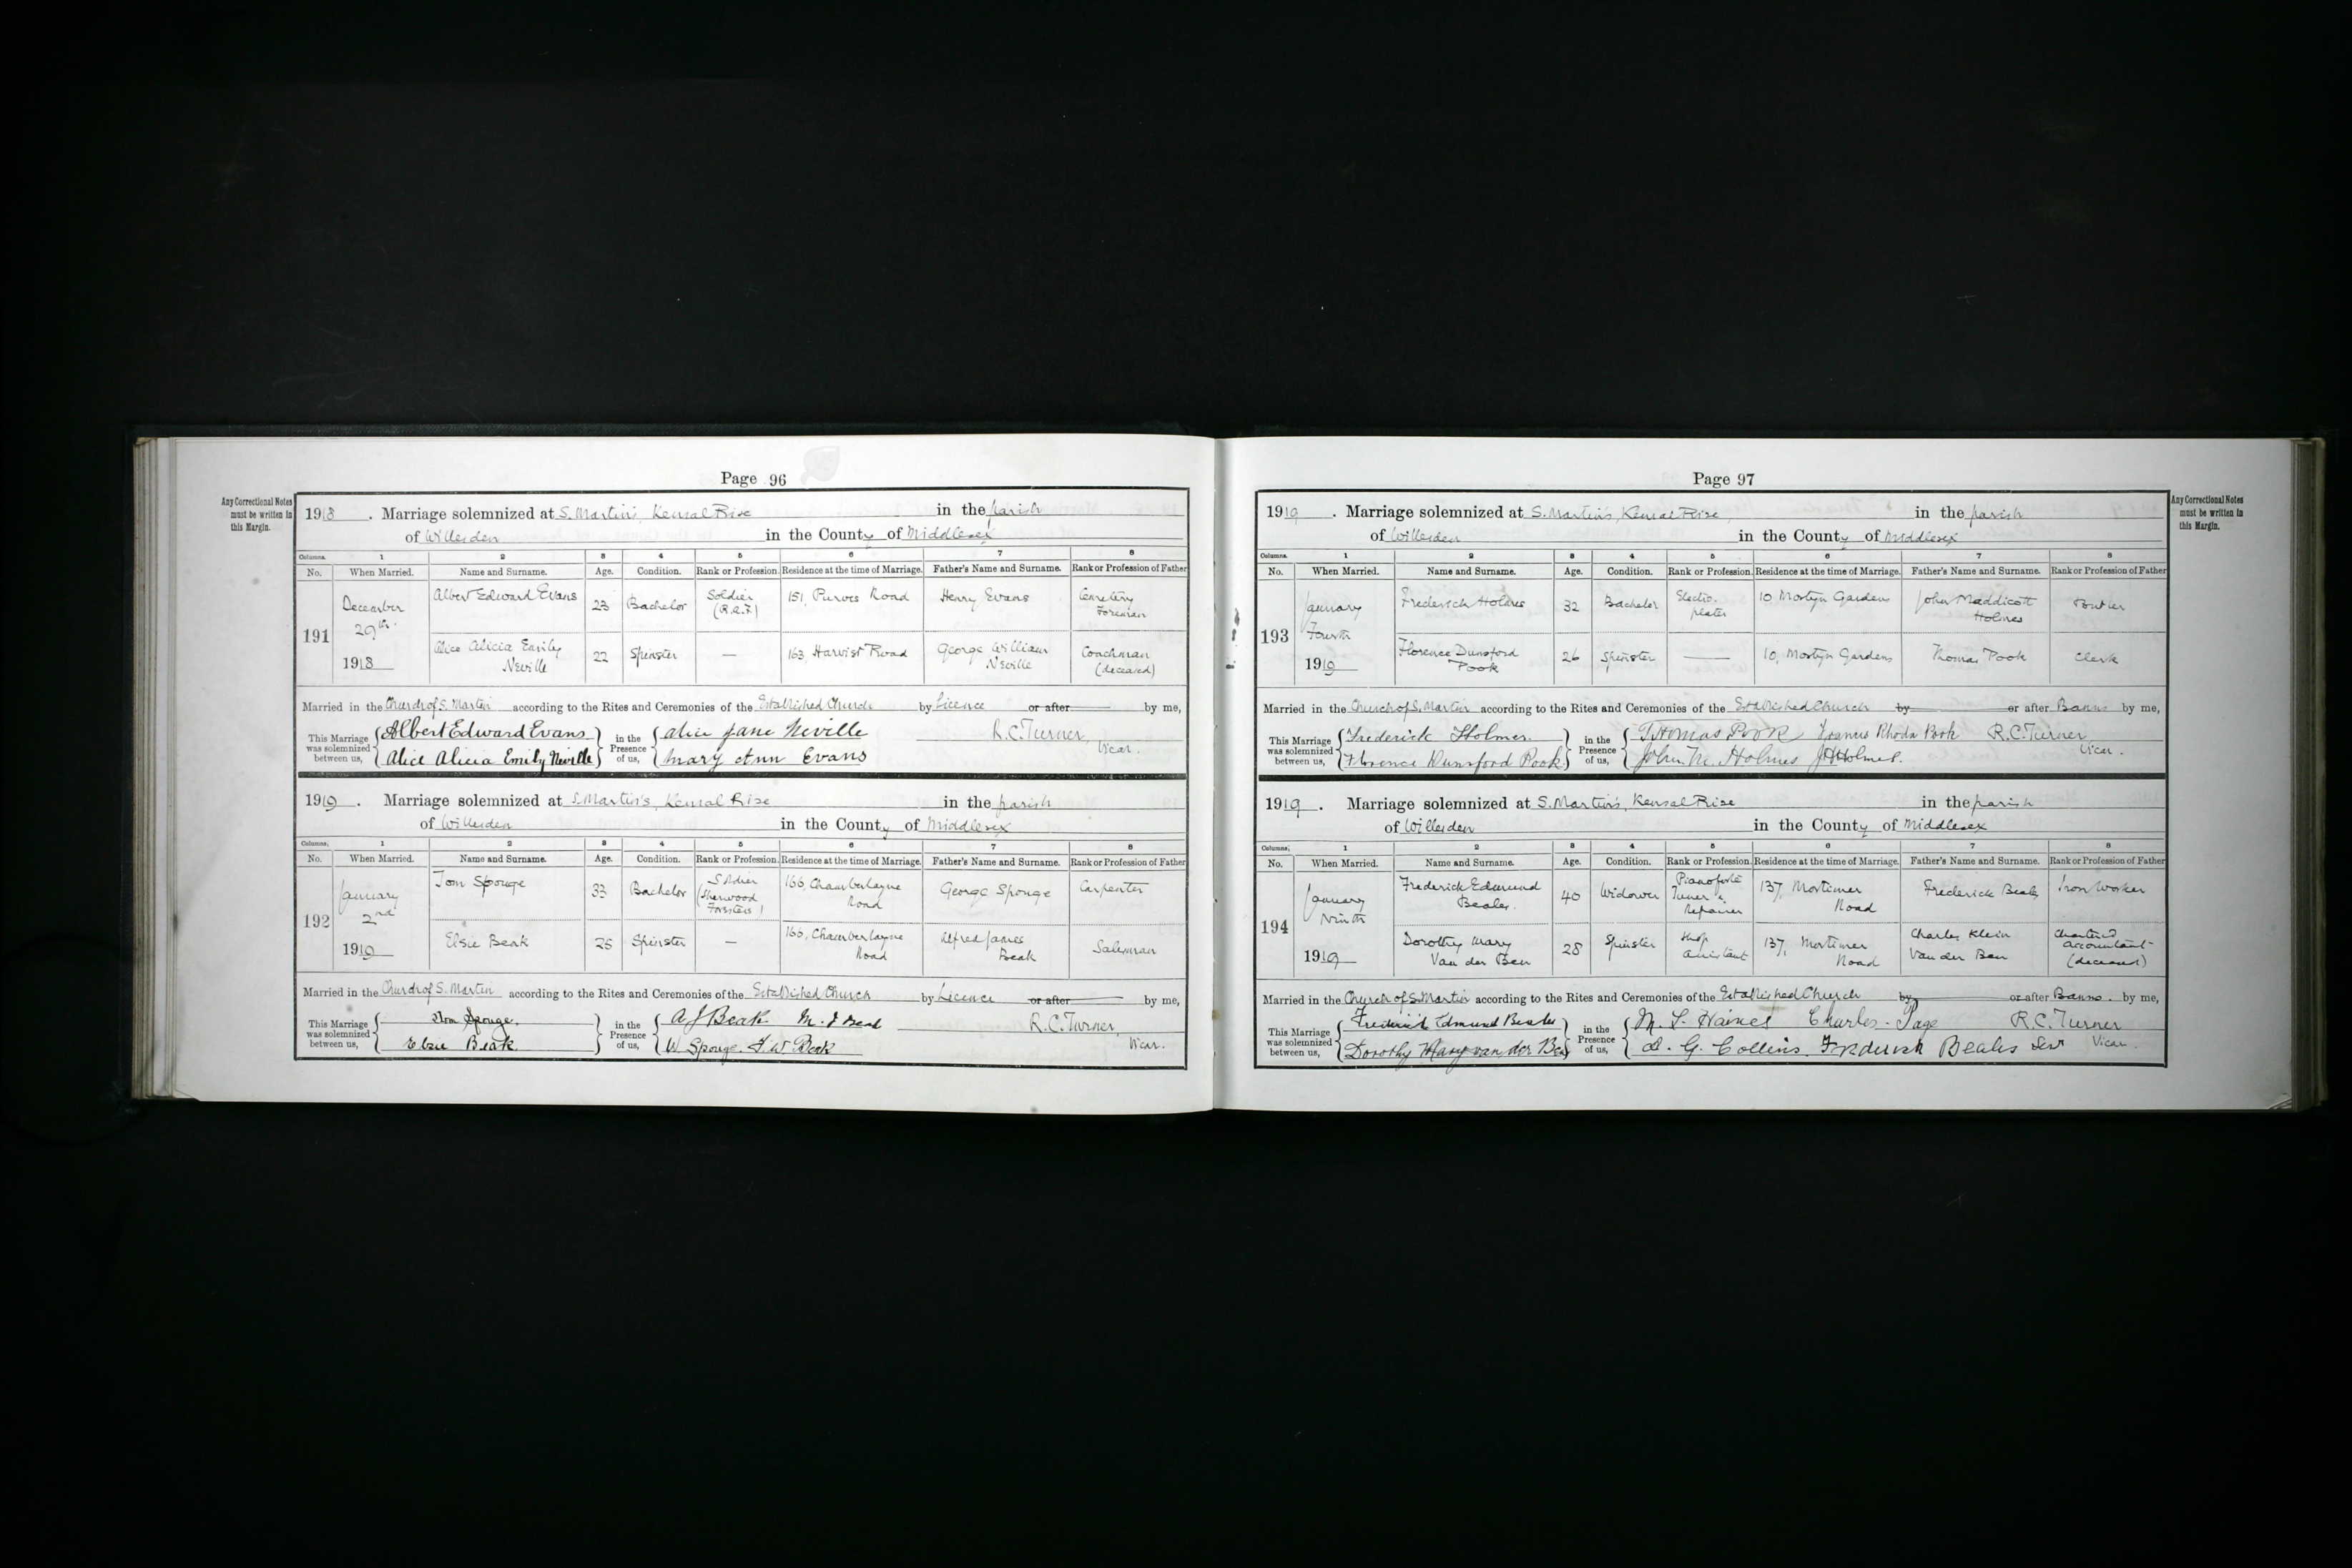 Page 96
Any Correctional Notes
must be written in
this Margin.
1918 . Marriage solemnized at S. Martin's, Kensal Rise in the parish
of Willesden in the County of Middlesex
Columns. 1 2 3 4 5 6 7 8
No. When Married. Name and Surname. Age. Condition. Rank or Profession. Residence at the time of Marriage. Father's Name and Surname. Rank or Profession of Father
191 December 29th 1918 Albert Edward Evans 23 Bachelor Soldier (R.A.F.) 151, Purves Road Henry Evans Cemetery Foreman
Alice Alicia Emily Neville 22 Spinster — 163 Harvist Road George William Neville Coachman (deceased)
Married in the Church of S. Martin according to the Rites and Ceremonies of the Established Church by Licence or after by me,
This Marriage was solemnized between us, Albert Edward Evans in the Presence of us, Alice Jane Neville R.C. Turner,
Alice Alicia Emily Neville Mary Ann Evans Vicar.
1919 . Marriage solemnized at S. Martin's, Kensal Rise in the parish
of Willesden in the County of Middlesex
Columns. 1 2 3 4 5 6 7 8
No. When Married. Name and Surname. Age. Condition. Rank or Profession. Residence at the time of Marriage. Father's Name and Surname. Rank or Profession of Father
192 January 2nd 1919 Tom Sponge 33 Bachelor Soldier (Sherwood Foresters) 166, Chamberlayne Road George Sponge Carpenter
Elsie Beak 25 Spinster — 166, Chamberlayne Road Alfred James Beak Salesman
Married in the Church of S. Martin according to the Rites and Ceremonies of the Established Church by Licence or after by me,
This Marriage was solemnized between us, Tom Sponge. in the Presence of us, A J Beak M. J Beak R.C. Turner,
Elsie Beak W Sponge. F W Beak Vicar.
Page 97
Any Correctional Notes
must be written in
this Margin.
1919 . Marriage solemnized at S. Martin's, Kensal Rise, in the parish
of Willesden in the County of Middlesex
Columns. 1 2 3 4 5 6 7 8
No. When Married. Name and Surname. Age. Condition. Rank or Profession. Residence at the time of Marriage. Father's Name and Surname. Rank or Profession of Father
193 January Fourth 1919 Frederick Holmes 32 Bachelor Electro-plater 10 Mostyn Gardens John Maddicott Holmes
Florence Dunsford Pook 26 Spinster — 10, Mostyn Gardens Thomas Pook Clerk
Married in the Church of S. Martin according to the Rites and Ceremonies of the Established Church by or after Banns by me,
This Marriage was solemnized between us, Frederick Holmes. in the Presence of us, Thomas Pook Rhoda Pook R.C. Turner
Florence Dunsford Pook John M. Holmes Holmes. Vicar.
1919 . Marriage solemnized at S. Martin's, Kensal Rise in the parish
of Willesden in the County of Middlesex
Columns. 1 2 3 4 5 6 7 8
No. When Married. Name and Surname. Age. Condition. Rank or Profession. Residence at the time of Marriage. Father's Name and Surname. Rank or Profession of Father
194 January Ninth 1919 Frederick Edmund Beales. 40 Widower Pianoforte Tuner & Repairer 137, Mortimer Road Frederick Beales Iron Worker
Dorothy Mary Van der Ben 28 Spinster Shop Assistant 137, Mortimer Road Charles Klein Van der Ben Chartered Accountant (deceased)
Married in the Church of S. Martin according to the Rites and Ceremonies of the Established Church by or after Banns. by me,
This Marriage was solemnized between us, Frederick Edmund Beales in the Presence of us, M. S. Haines Charles Page R.C. Turner
Dorothy Mary van der Ben G. Collins. Frederick Beales Senr Vicar.